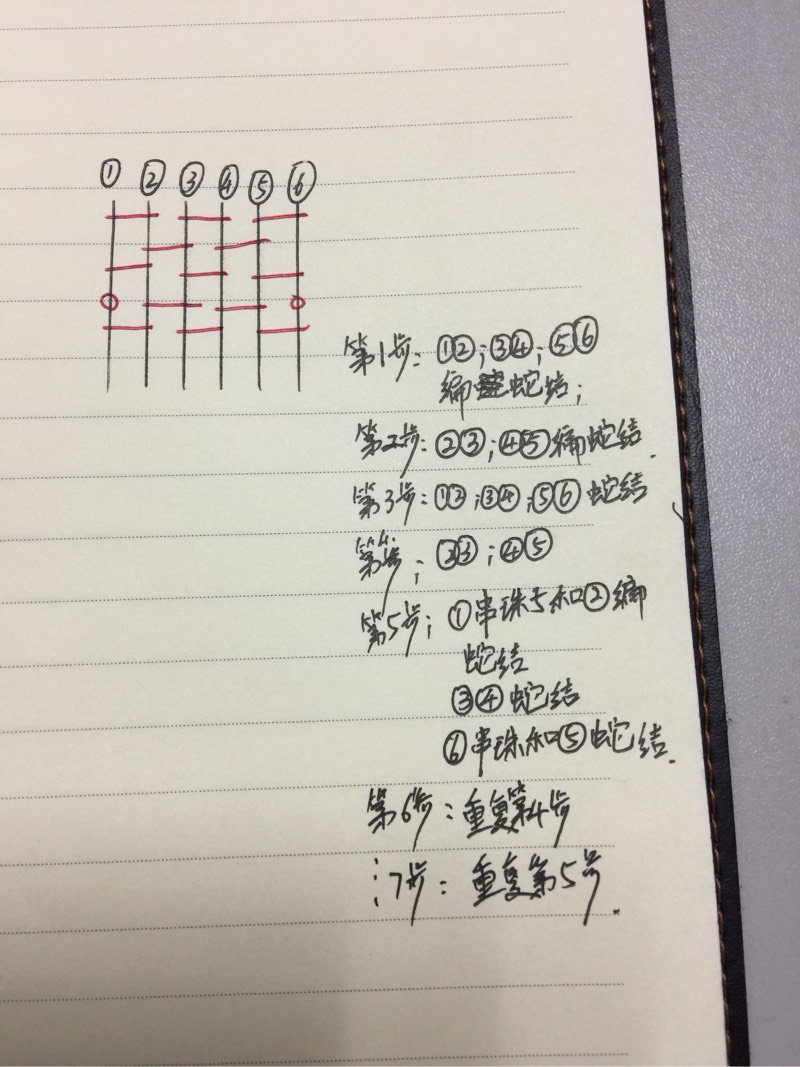 ① ② ③ ④ ⑤ ⑥
第1步：①②；③④；⑤⑥
编蛇结；
第2步：②③；④⑤编蛇结.
第3步：①②；③④；⑤⑥蛇结
第4步；②③；④⑤
第5步；①串珠与和②编
蛇结
③④蛇结
⑥串珠和⑤蛇结.
第6步：重复第4步
⋮7步：重复第5步.